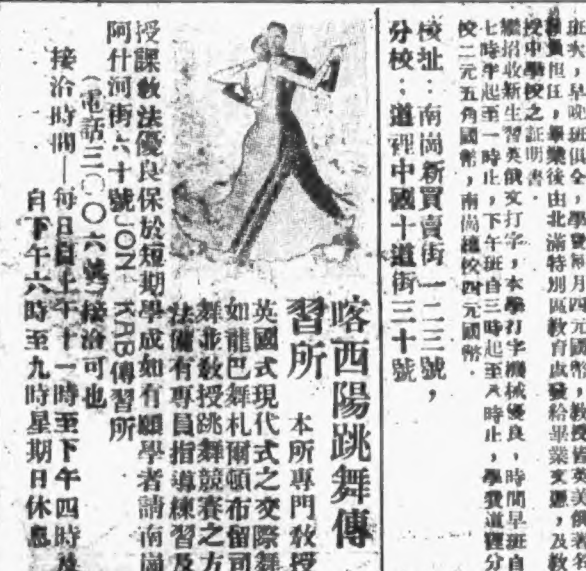 班次,早晚班俱全,學費每月四元國幣,教授皆英美俄著名
教員担任,畢業後由北滿特別區教育處發給畢業文憑,及教
授中學校之証明書.
繼招收新生習英俄文打字,本學打字機械優良,時間早班自
七時半起至一時止,下午班自三時起至八時止,學費道裡分
校二元五角國幣,南崗總校四元國幣.
校址:南崗新買賣街一二三號,
分校:道裡中國十道街三十號
喀西陽跳舞傳
習所
本所專門教授
英國式現代式之交際舞
如龍巴舞札爾頓布留司
舞並教授跳舞競賽之方
法備有專員指導練習及
授課教法優良保於短期學成如有願學者請南崗
阿什河街六十號JON-KAB傳習所
(電話三〇〇六號)接洽可也
接洽時間—每日自上午十一時至下午四時及
自下午六時至九時星期日休息